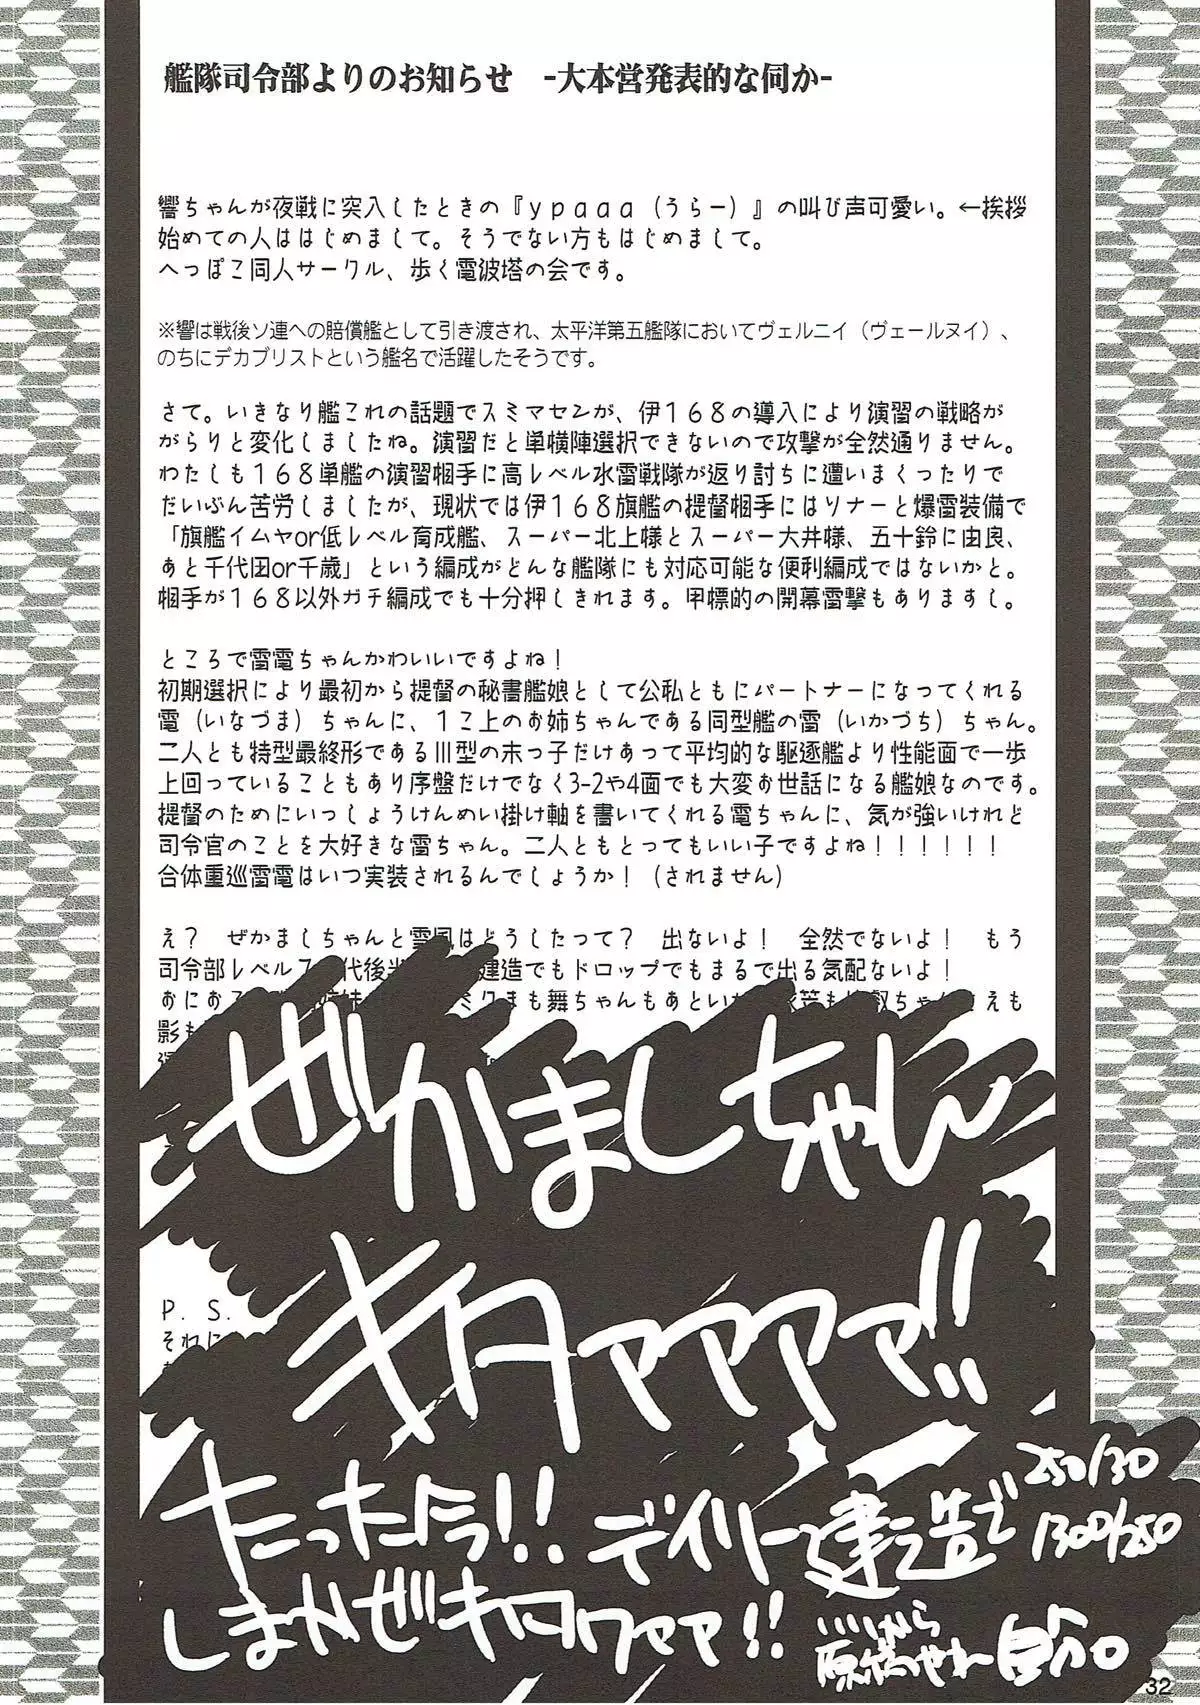 艦隊司令部よりのお知らせ　-大本営発表的な何か-
響ちゃんが夜戦に突入したときの『ypaaa（うらー）』の叫び声可愛い。←挨拶
始めての人ははじめまして。そうでない方もはじめまして。
へっぽこ同人サークル、歩く電波塔の会です。
※響は戦後ソ連への賠償艦として引き渡され、太平洋第五艦隊においてヴェルニイ（ヴェールヌイ）、
のちにデカブリストという艦名で活躍したそうです。
さて。いきなり艦これの話題でスミマセンが、伊１６８の導入により演習の戦略が
がらりと変化しましたね。演習だと単横陣選択できないので攻撃が全然通りません。
わたしも１６８単艦の演習相手に高レベル水雷戦隊が返り討ちに遭いまくったりで
だいぶん苦労しましたが、現状では伊１６８旗艦の提督相手にはソナーと爆雷装備で
「旗艦イムヤor低レベル育成艦、スーパー北上様とスーパー大井様、五十鈴に由良、
あと千代田or千歳」という編成がどんな艦隊にも対応可能な便利編成ではないかと。
相手が１６８以外ガチ編成でも十分押しきれます。甲標的の開幕雷撃もありますし。
ところで雷電ちゃんかわいいですよね！
初期選択により最初から提督の秘書艦娘として公私ともにパートナーになってくれる
電（いなづま）ちゃんに、１こ上のお姉ちゃんである同型艦の雷（いかづち）ちゃん。
二人とも特型最終形であるⅢ型の末っ子だけあって平均的な駆逐艦より性能面で一歩
上回っていることもあり序盤だけでなく3-2や4面でも大変お世話になる艦娘なのです。
提督のためにいっしょうけんめい掛け軸を書いてくれる電ちゃんに、気が強いけれど
司令官のことを大好きな雷ちゃん。二人ともとってもいい子ですよね！！！！！！
合体重巡雷電はいつ実装されるんでしょうか！（されません）
え？　ぜかましちゃんと雪風はどうしたって？　出ないよ！　全然でないよ！　もう
司令部レベル７代後半建造でもドロップでもまるで出る気配ないよ！
まも舞ちゃんもあと
影も
ぜかましちゃん
キタァァァァ!!
P．S．
それに
たった今!!デイリー建造で
250/30
1300/250
しまかぜキタワァァ!!
原稿やれー自分
32